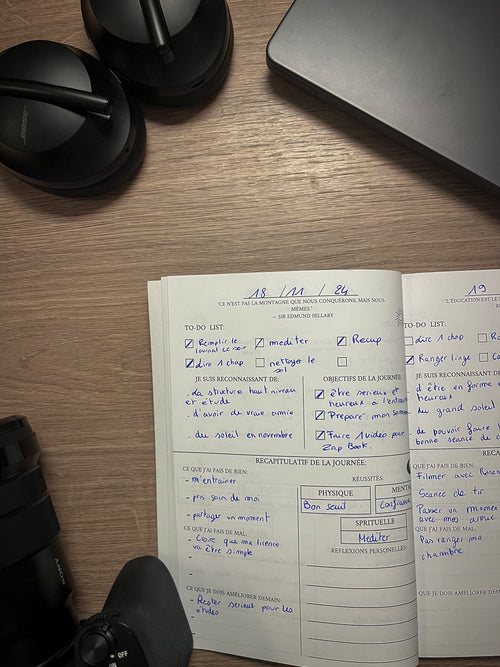 BOSE
18 / 11 / 24
"CE N'EST PAS LA MONTAGNE QUE NOUS CONQUÉRONS, MAIS NOUS-
MÊMES."
— SIR EDMUND HILLARY
TO-DO LIST:
Remplir le
journal ce soir
mediter
Recup
Lire 1 chap
nettoyer le
sol
JE SUIS RECONNAISSANT DE:
. da structure haut niveau
et étude
. d'avoir du vraie amie
. du soleil en novembre
OBJECTIFS DE LA JOURNÉE
être serieux et
heureux a l'entrai
Prepare mon
Faire 1 video pour
Zap Book.
RECAPITULATIF DE LA JOURNÉE:
CE QUE J'AI FAIS DE BIEN:
- m'entrainer
- pris soin de moi
- partager un moment
CE QUE J'AI FAIS DE MAL:
- Croire que ma licence
va être simple
-
-
CE QUE JE DOIS AMÉLIORER DEMAIN:
- Rester serieux pour les
études
-
RÉUSSITES:
PHYSIQUE
MENTA
Bon seuil
Confiance
SPRITUELLE
Mediter
REFLEXIONS PERSONELLES:
19
"L'ÉDUCATION EST LE
TO-DO LIST:
dire 1 chap
Ranger linge
JE SUIS RECONNAISSANT DE
d'être en forme
heureux
du grand soleil
de pouvoir faire
bonne séance de
RECA
CE QUE J'AI FAIS DE BIEN:
Filmer avec
Seance de tir
Passer un moment
avec mes amies
CE QUE J'AI FAIS DE MAL:
Pas ranger ma
chambre
QUE JE DOIS AMÉLIORER DEM
SONY
OFF